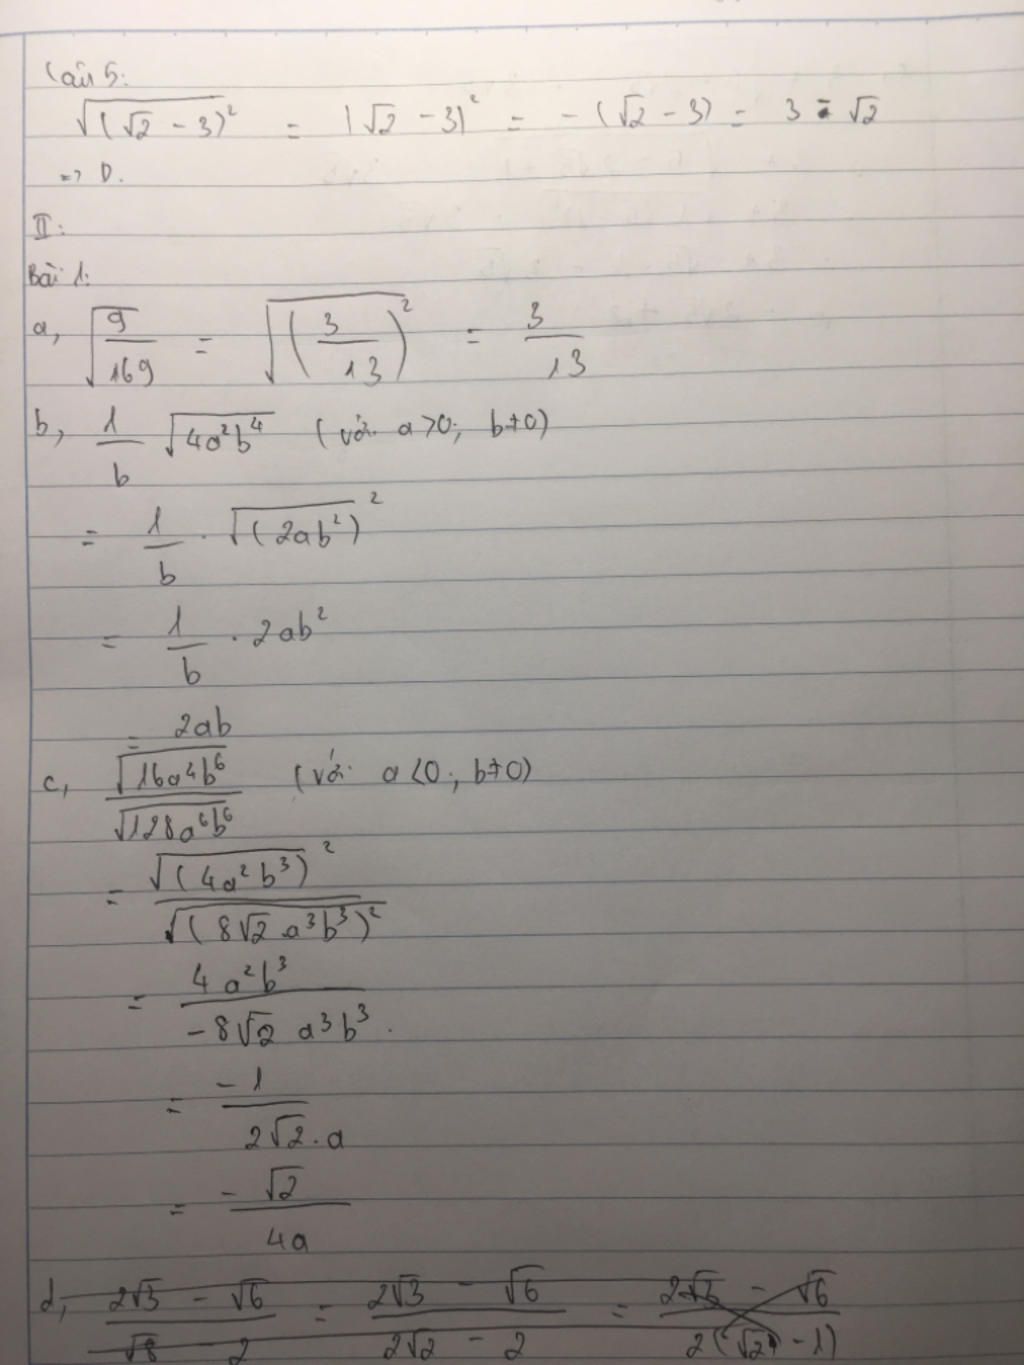 Câu 5:
√((√2 - 3)²) = |√2 - 3|² = -(√2 - 3) = 3 - √2
=> D.
II:
Bài 1:
a, √(9/169) = √((3/13)²) = 3/13
b, 1/b √(4a²b⁴) (với a>0; b≠0)
= 1/b . √((2ab²)²)
= 1/b . 2ab²
= 2ab
c, √(16a⁴b⁶)/√(128a⁶b⁶) (với a<0; b≠0)
= √((4a²b³)²)/√((8√2 a³b³)²)
= 4a²b³/(-8√2 a³b³).
= -1/(2√2.a)
= -√2/(4a)
d, (2√3 - √6)/(√8 - 2) = (2√3 - √6)/(2√2 - 2) = (2√3 - √6)/(2(√2 - 1))